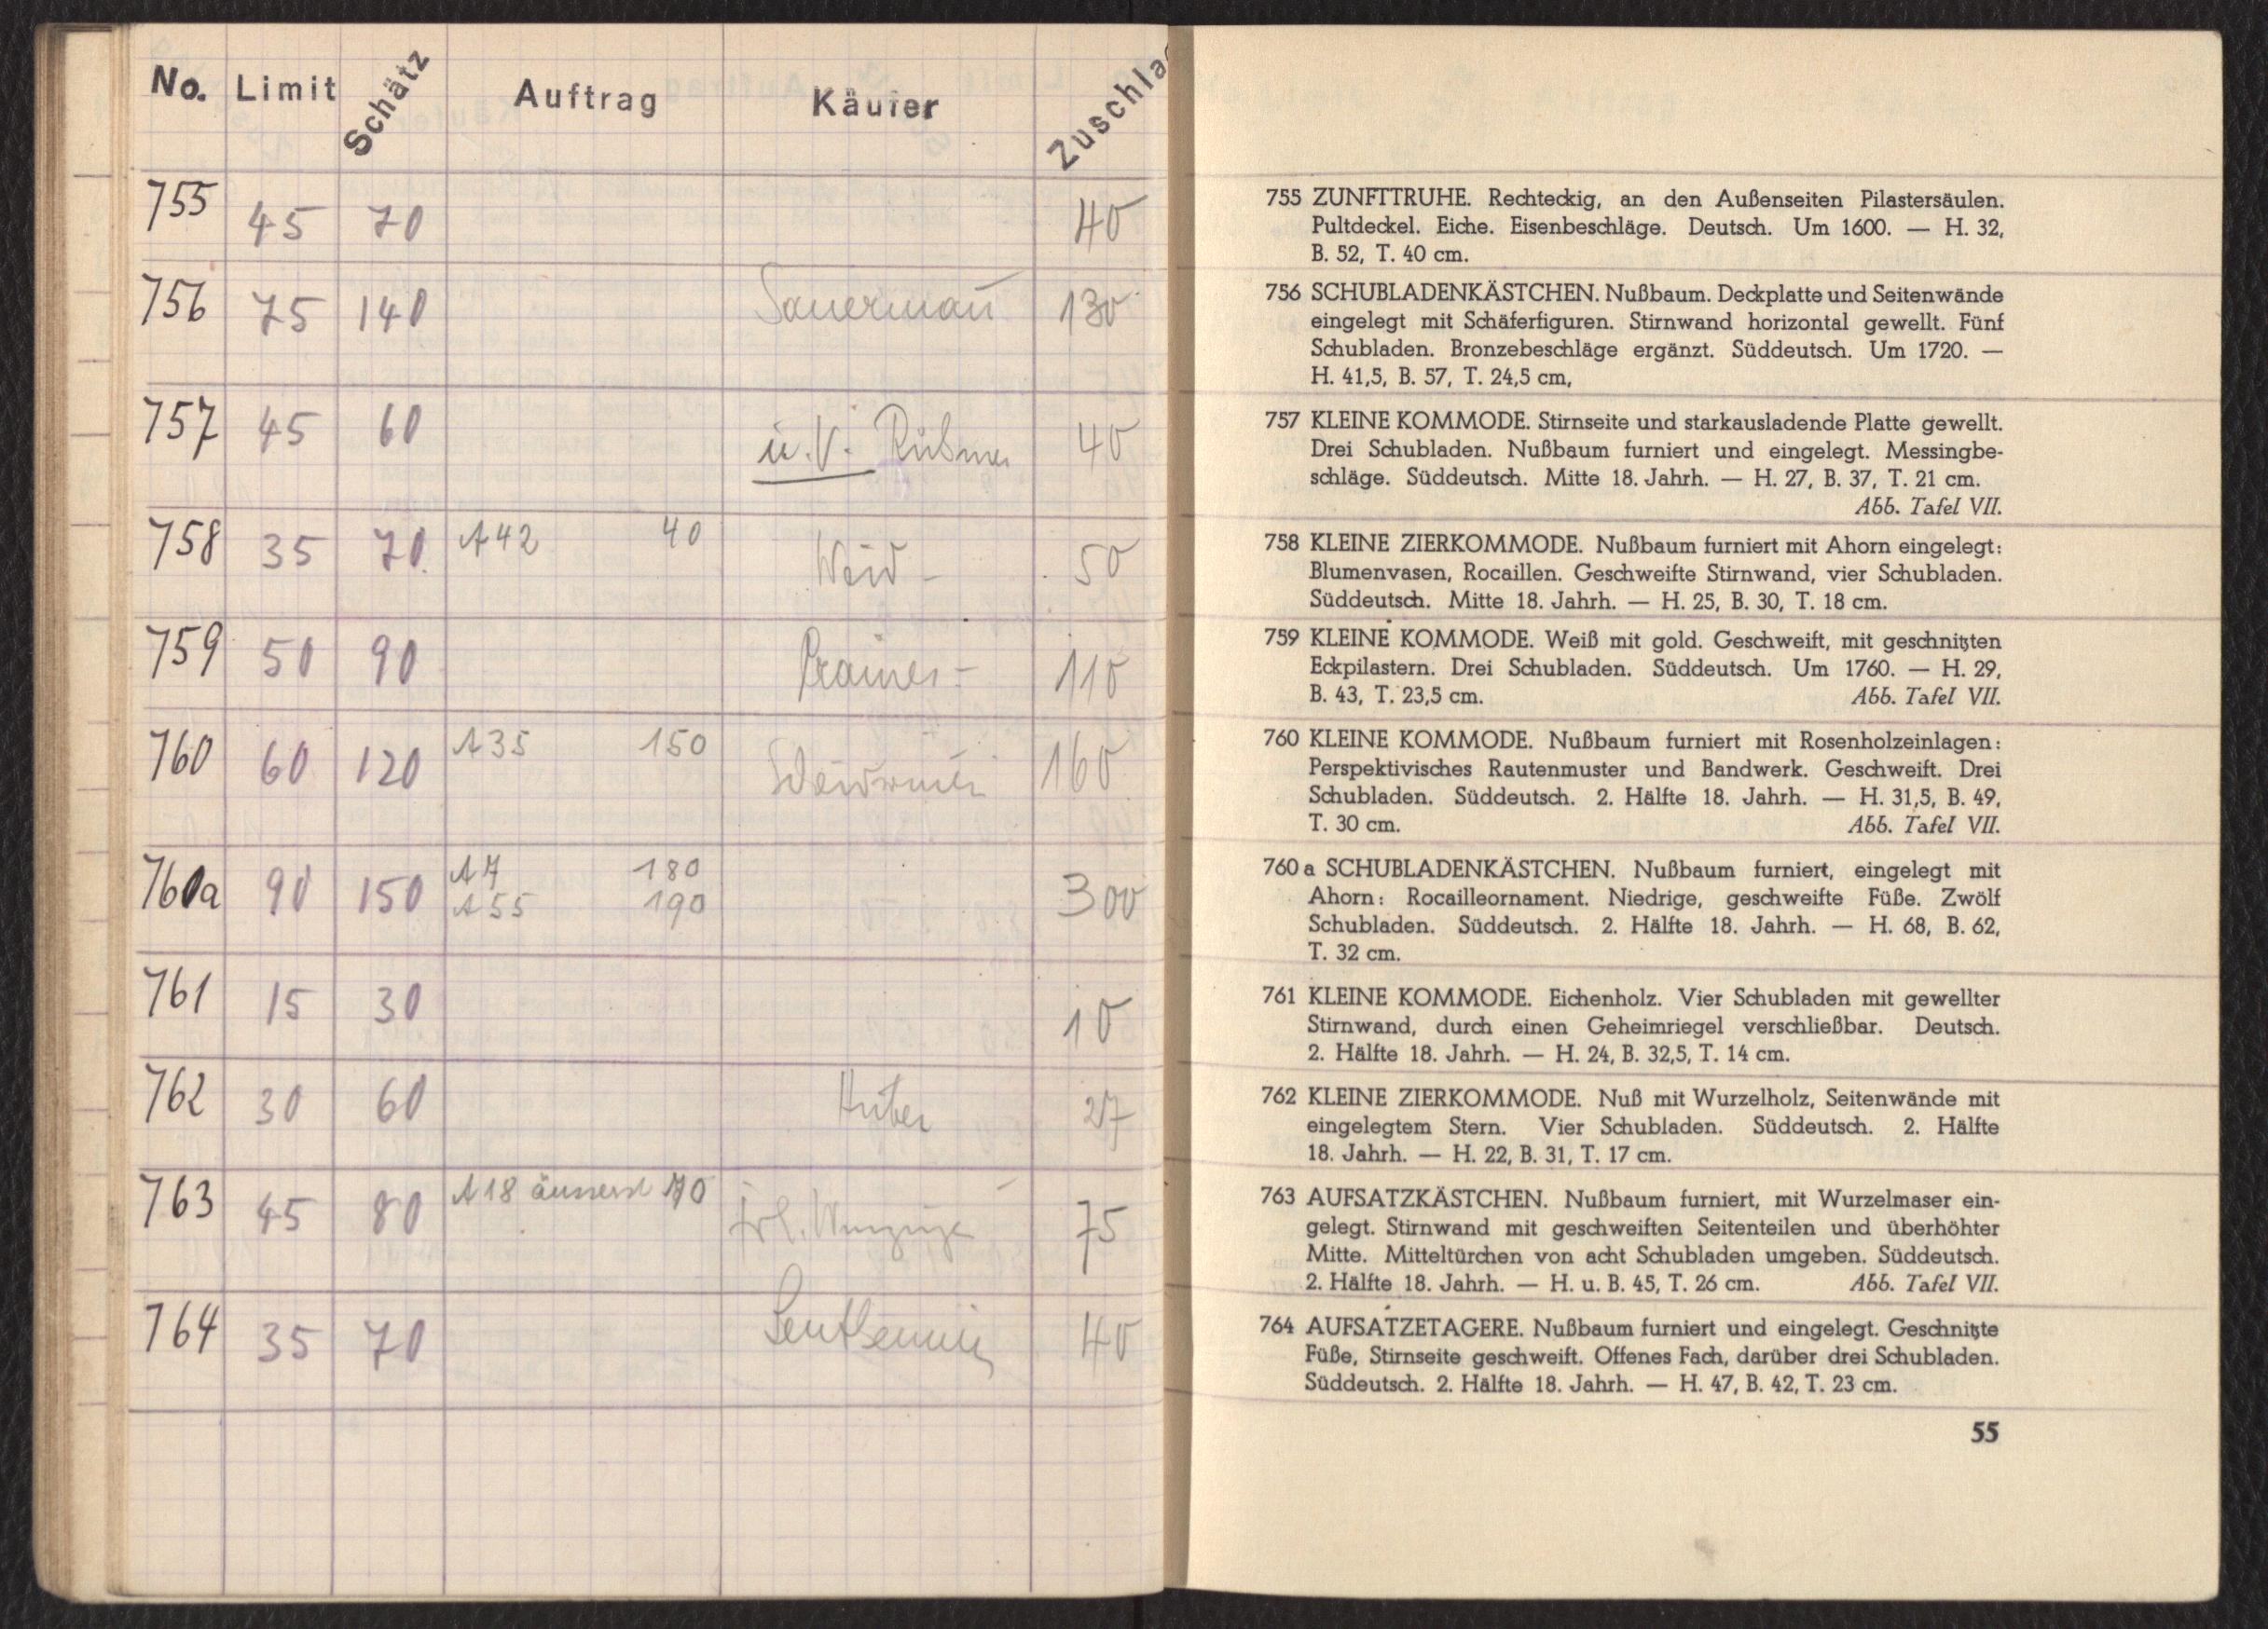 No. Limit Schätz Auftrag Käufer Zuschlag
755 45 70 40
756 75 140 Sauermann 130
757 45 60 ü.V. 40
758 35 70 A42 40 50
759 50 90 110
760 60 120 A35 150 160
760a 90 150 A7 180 300
A55 190
761 15 30 10
762 30 60 Huber 27
763 45 80 A18 äusserst 70 Frl. 75
764 35 70 40
755 ZUNFTTRUHE. Rechteckig, an den Außenseiten Pilastersäulen.
Pultdeckel. Eiche. Eisenbeschläge. Deutsch. Um 1600. — H. 32,
B. 52, T. 40 cm.
756 SCHUBLADENKÄSTCHEN. Nußbaum. Deckplatte und Seitenwände
eingelegt mit Schäferfiguren. Stirnwand horizontal gewellt. Fünf
Schubladen. Bronzebeschläge ergänzt. Süddeutsch. Um 1720. —
H. 41,5, B. 57, T. 24,5 cm,
757 KLEINE KOMMODE. Stirnseite und starkausladende Platte gewellt.
Drei Schubladen. Nußbaum furniert und eingelegt. Messingbe-
schläge. Süddeutsch. Mitte 18. Jahrh. — H. 27, B. 37, T. 21 cm.
Abb. Tafel VII.
758 KLEINE ZIERKOMMODE. Nußbaum furniert mit Ahorn eingelegt:
Blumenvasen, Rocaillen. Geschweifte Stirnwand, vier Schubladen.
Süddeutsch. Mitte 18. Jahrh. — H. 25, B. 30, T. 18 cm.
759 KLEINE KOMMODE. Weiß mit gold. Geschweift, mit geschnitzten
Eckpilastern. Drei Schubladen. Süddeutsch. Um 1760. — H. 29,
B. 43, T. 23,5 cm. Abb. Tafel VII.
760 KLEINE KOMMODE. Nußbaum furniert mit Rosenholzeinlagen:
Perspektivisches Rautenmuster und Bandwerk. Geschweift. Drei
Schubladen. Süddeutsch. 2. Hälfte 18. Jahrh. — H. 31,5, B. 49,
T. 30 cm. Abb. Tafel VII.
760 a SCHUBLADENKÄSTCHEN. Nußbaum furniert, eingelegt mit
Ahorn: Rocailleornament. Niedrige, geschweifte Füße. Zwölf
Schubladen. Süddeutsch. 2. Hälfte 18. Jahrh. — H. 68, B. 62,
T. 32 cm.
761 KLEINE KOMMODE. Eichenholz. Vier Schubladen mit gewellter
Stirnwand, durch einen Geheimriegel verschließbar. Deutsch.
2. Hälfte 18. Jahrh. — H. 24, B. 32,5, T. 14 cm.
762 KLEINE ZIERKOMMODE. Nuß mit Wurzelholz, Seitenwände mit
eingelegtem Stern. Vier Schubladen. Süddeutsch. 2. Hälfte
18. Jahrh. — H. 22, B. 31, T. 17 cm.
763 AUFSATZKÄSTCHEN. Nußbaum furniert, mit Wurzelmaser ein-
gelegt. Stirnwand mit geschweiften Seitenteilen und überhöhter
Mitte. Mitteltürchen von acht Schubladen umgeben. Süddeutsch.
2. Hälfte 18. Jahrh. — H. u. B. 45, T. 26 cm. Abb. Tafel VII.
764 AUFSATZETAGERE. Nußbaum furniert und eingelegt. Geschnitzte
Füße, Stirnseite geschweift. Offenes Fach, darüber drei Schubladen.
Süddeutsch. 2. Hälfte 18. Jahrh. — H. 47, B. 42, T. 23 cm.
55